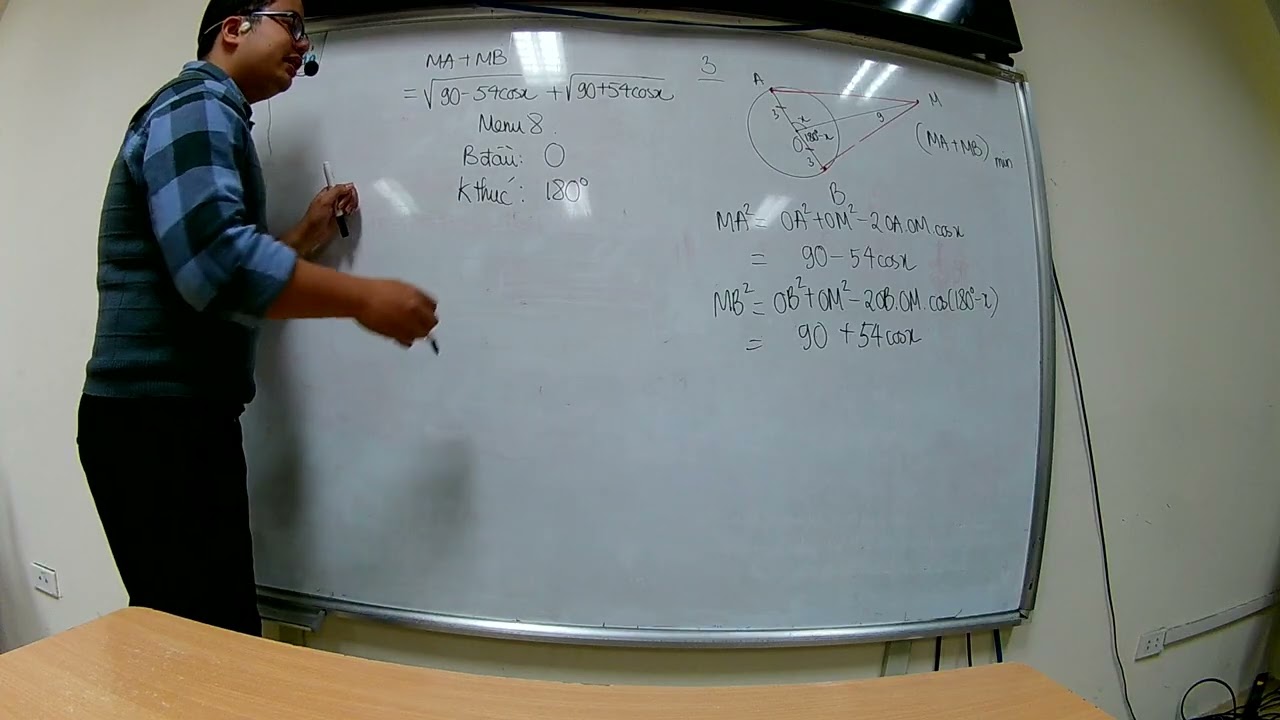 MA+MB
= √90-54cosx + √90+54cosx
Menu 8.
B đầu: 0
K thúc: 180°
3
A
M
3
x
9
O
180°-x
3
B
(MA+MB) min
MA² = OA²+OM²-2OA.OM.cosx
= 90-54cosx
MB² = OB²+OM²-2OB.OM.cos(180°-x)
= 90+54cosx